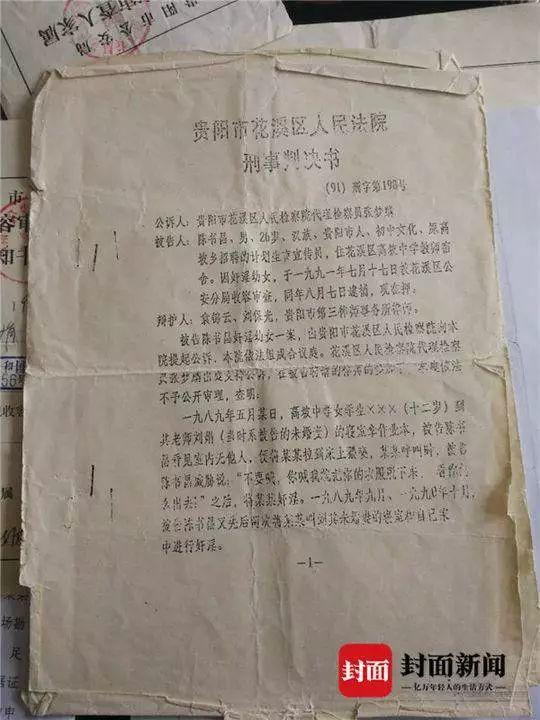 贵阳市花溪区人民法院
刑事判决书
(91)刑字第198号
公诉人:贵阳市花溪区人民检察院代理检察员张梦
被告人:陈书昌、男、26岁、汉族、贵阳市人、初中文化、原高
坡乡招聘的计划生育宣传员,住花溪区高坡中学教师宿
舍。因奸淫幼女,于一九九一年七月十七日被花溪区公
安分局收容审查,同年八月七日逮捕,现在押。
辩护人:袁锦云、刘保光,贵阳市第三律师事务所律师。
被告陈书昌奸淫幼女一案,由贵阳市花溪区人民检察院向本
院提起公诉,本院依法组成合议庭。花溪区人民检察院代理检察
员张梦出庭支持公诉,在被告聘请的律师的参加下,本院依法
不予公开审理,查明:
一九八九年五月某日,高坡中学女学生×××(十二岁)到
其老师刘娟(当时系被告的未婚妻)的寝室拿作业本,被告陈书
昌看见室内无他人,便将某某拉到床上,某某呼叫时,被告
陈书昌威胁说:“不要喊,你喊我
么出去!”之后,将某某奸淫。一九八九年九月、一九九〇年十月,
被告陈书昌又先后两次将某某叫到其未婚妻的寝室和自己家
中进行奸淫。
—1—
封面
封面新闻
亿万年轻人的生活方式